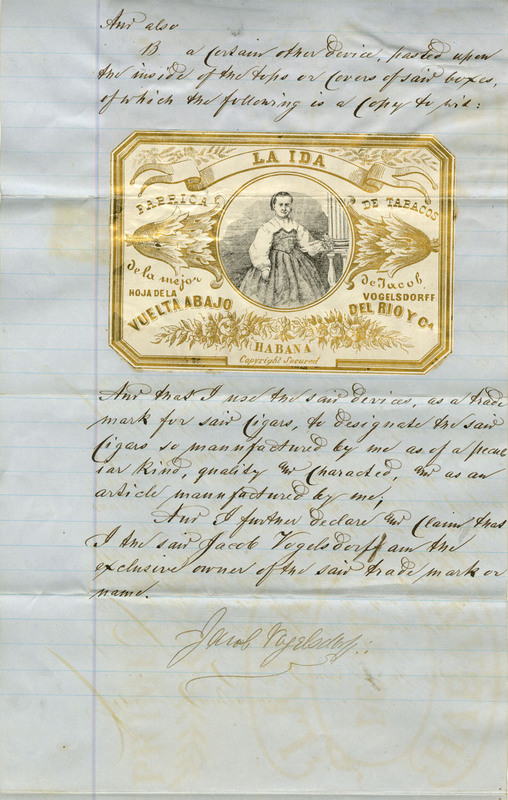 And also
B a Certain other device, pasted upon
the inside of the tops or Covers of said boxes,
of which the following is a Copy to wit:
LA IDA
FABRICA DE TABACOS
de la mejor de Jacob
HOJA DE LA VOGELSDORFF
VUELTA ABAJO DEL RIO Y Ca.
HABANA
Copyright Secured
And that I use the said devices, as a trade
mark for said Cigars, to designate the said
Cigars so manufactured by me as of a pecul
iar kind, quality and Characted, and as an
article manufactured by me,
And I further declare and Claim that
I the said Jacob Vogelsdorff am the
exclusive owner of the said trade mark or
name.
Jacob Vogelsdorff